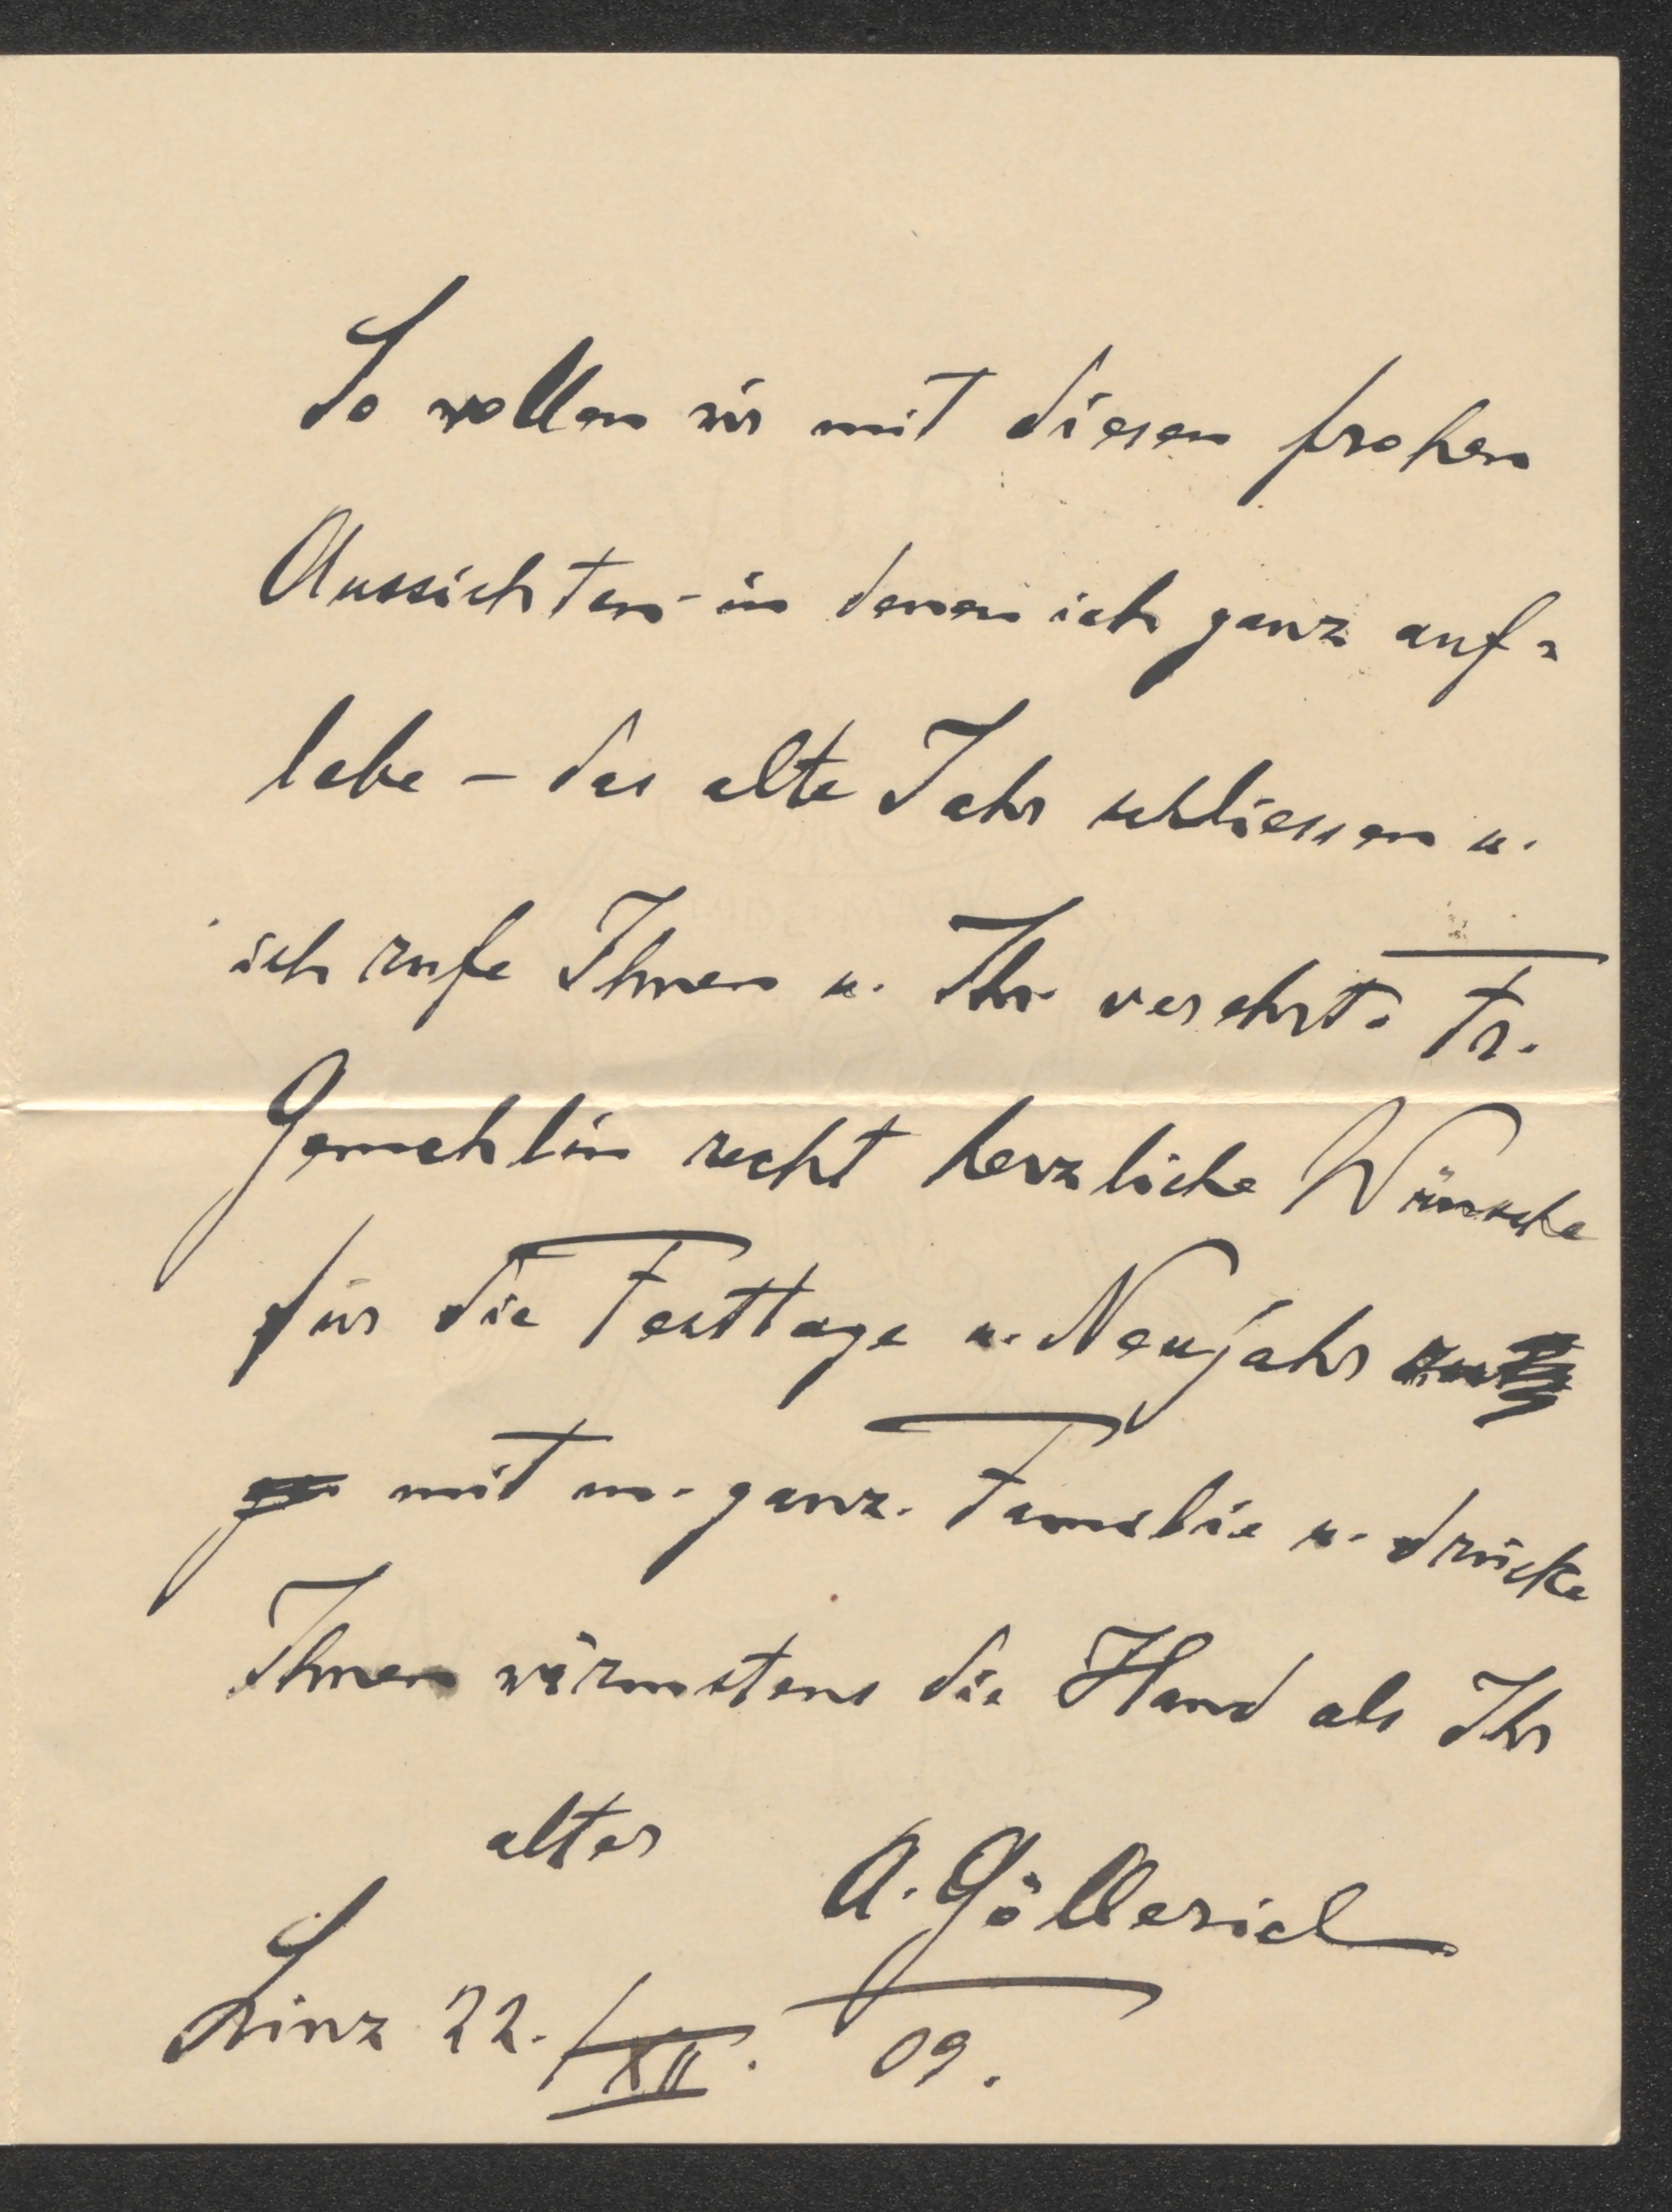 So wollen wir mit diesen frohen
Aussichten – in denen ich ganz auf=
lebe – das alte Jahr schliessen u.
ich rufe Ihnen u. Ihr. verehrt. Fr.
Gemahlin recht herzliche Wünsche
für die Festtage u. Neujahr
mit m. ganz. Familie u. drücke
Ihnen wärmstens die Hand als Ihr
alter A. Göllerich
Linz 22./XII. 09.